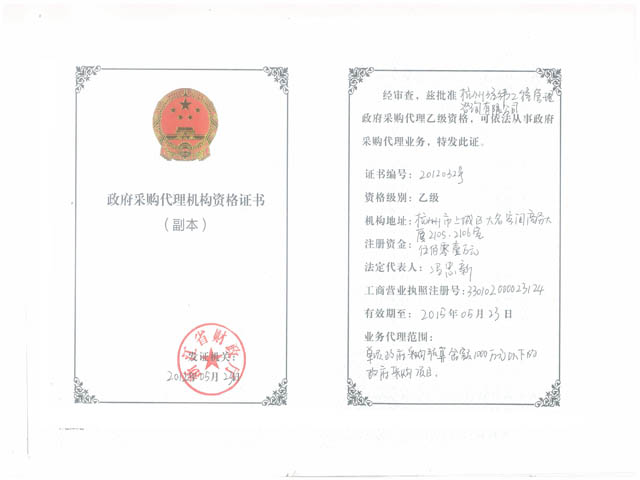 政府采购代理机构资格证书
（副本）
浙江省财政厅
发证机关：
2012年05月24日
经审查，兹批准杭州
咨询有限公司
政府采购代理乙级资格，可依法从事政府
采购代理业务，特发此证。
证书编号：2012032号
资格级别：乙级
机构地址：杭州市上城区大名空间商务大
厦2105、2106室
注册资金：伍佰零壹万元
法定代表人：冯忠新
工商营业执照注册号：330102000023124
有效期至：2015年05月23日
业务代理范围：
单项政府采购预算金额1000万元以下的
政府采购项目。